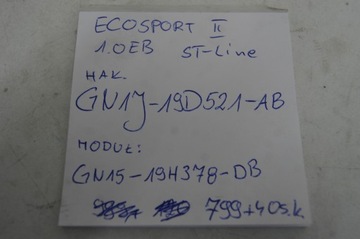 ECOSPORT II
1.0EB ST-Line
HAK.
GN1J-19D521-AB
MODUŁ:
GN15-19H378-DB
799+40s.k